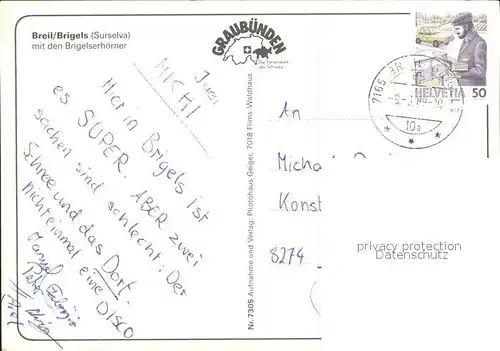 Breil/Brigels (Surselva)
mit den Brigelserhörner
GRAUBÜNDEN
Die Ferienecke
der Schweiz
HELVETIA 50
7165
10a
MICHI
Hier in Brigels ist
es SUPER. ABER zwei
sachen sind schlecht: Der
Schnee und das Dorf.
Nichteinmal eine DISCO
Nr. 7305 Aufnahme und Verlag: Photohaus Geiger, 7018 Flims-Waldhaus
An
Konst
8274
privacy protection
Datenschutz